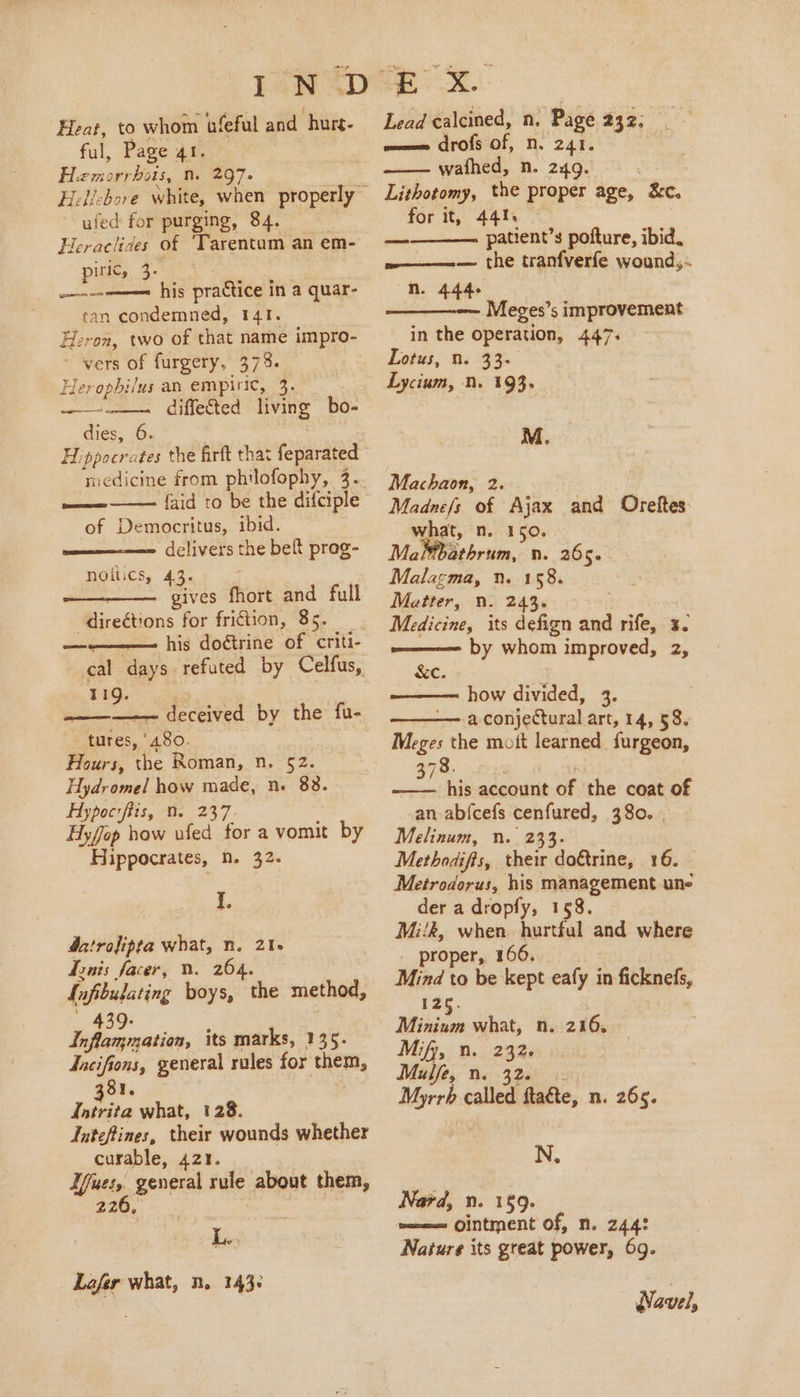 I N D E X.
Heat, to whom uſeful and hurt-
ful, Page 41.
Hæmorrhois, n. 297.
Hellebore white, when properly
uſed for purging, 84.
Heraclides of Tarentum an em-
piric, 3.
—— his practice in a quar-
tan condemned, 141.
Heron, two of that name impro-
vers of ſurgery, 378.
Herophilus an empiric, 3.
—— diſſected living bo-
dies, 6.
Hippocrates the firſt that ſeparated
medicine from philoſophy, 3.
—— ſaid to be the diſciple
of Democritus, ibid.
—— delivers the beſt prog-
noſtics, 43.
—— gives ſhort and full
directions for friction, 85.
—— his doctrine of criti-
cal days refuted by Celſus,
119.
—— deceived by the ſu-
tures, 480.
Hours, the Roman, n. 52.
Hydromel how made, n. 88.
Hypociſtis, n. 237.
Hyſſop how uſed for a vomit by
Hippocrates, n. 32.
I.
Iatrolipta what, n. 21.
Ignis ſacer, n. 264.
Infibulating boys, the method,
439.
Inflammation, its marks, 135.
Inciſions, general rules for them,
381.
Intrita what, 128.
Inteſtines, their wounds whether
curable, 421.
Iſſues, general rule about them,
226.
L.
Laſer what, n. 143.
Lead calcined, n. Page 232.
—— droſs of, n. 241.
—— waſhed, n. 249.
Lithotomy, the proper age, &c.
for it, 441.
—— patient's poſture, ibid.
—— the tranſverſe wound,
n. 444.
—— Meges's improvement
in the operation, 447.
Lotus, n. 33.
Lycium, n. 193.
M.
Machaon, 2.
Madneſs of Ajax and Oreſtes
what, n. 150.
Malobathrum, n. 265.
Malagma, n. 158.
Matter, n. 243.
Medicine, its deſign and riſe, 1.
—— by whom improved, 2,
&c.
—— how divided, 3.
—— a conjectural art, 14, 58.
Meges the moſt learned ſurgeon,
378.
—— his account of the coat of
an abſceſs cenſured, 380.
Melinum, n. 233.
Methodiſts, their doctrine, 16.
Metrodorus, his management un-
der a dropſy, 158.
Milk, when hurtful and where
proper, 166.
Mind to be kept eaſy in ſickneſs,
125.
Minium what, n. 216.
Miſy, n. 232.
Mulſe, n. 32.
Myrrh called ſtacte, n. 265.
N.
Nard, n. 159.
—— ointment of, n. 244.
Nature its great power, 69.
Navel,